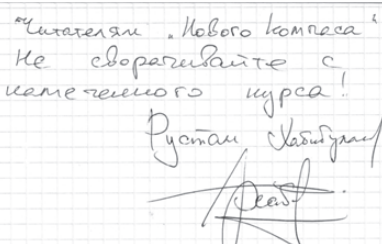 "Читателям „Нового Компаса“
Не сворачивайте с
намеченного курса!
Рустам